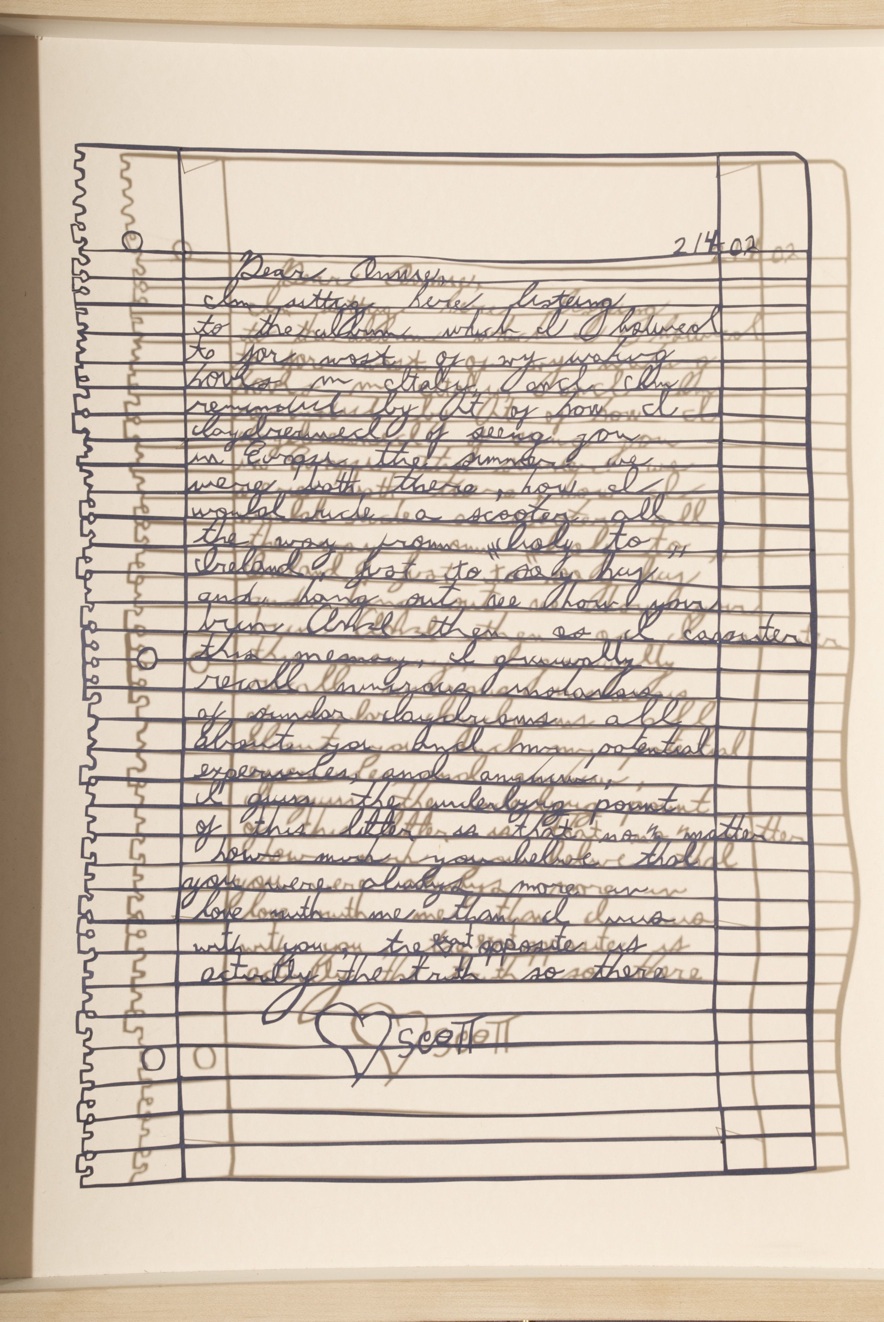 2/4-02
Dear
sitting here, listening
to the album which I
to for most of my waking
hours in Italy, and
reminded by it of how I
daydreamed of seeing you
in Europe the summer we
were both there, how I
would ride a scooter all
the way from "Italy to"
Ireland just to say hey
and hang out, see how your
And then as I
this memory, I gradually
recall
of similar daydreams all
about you and potential
experiences, and
I guess the underlying point
of this letter is that no matter
how much you believe that
you were always more in
love with me than I was
with you, the opposite is
actually the truth so there
SCOTT